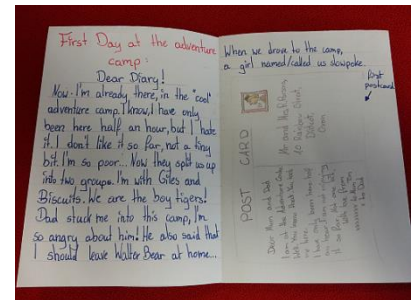 First Day at the adventure
camp:
Dear Diary!
Now I'm already there, in the "cool"
adventure camp. I know, I have only
been here half an hour, but I hate
it. I don't like it so far, not a tiny
bit. I'm so poor... Now they split us up
into two groups. I'm with Giles and
Biscuits. We are the boy tigers!
Dad stuck me into this camp, I'm
so angry about him! He also said that
I should leave Walter Bear at home...
When we drove to the camp,
a girl named/called us slowpoke.
first
postcard
POST CARD
Mr and Mrs
10 Rainbow Street,
Dear Mum and Dad